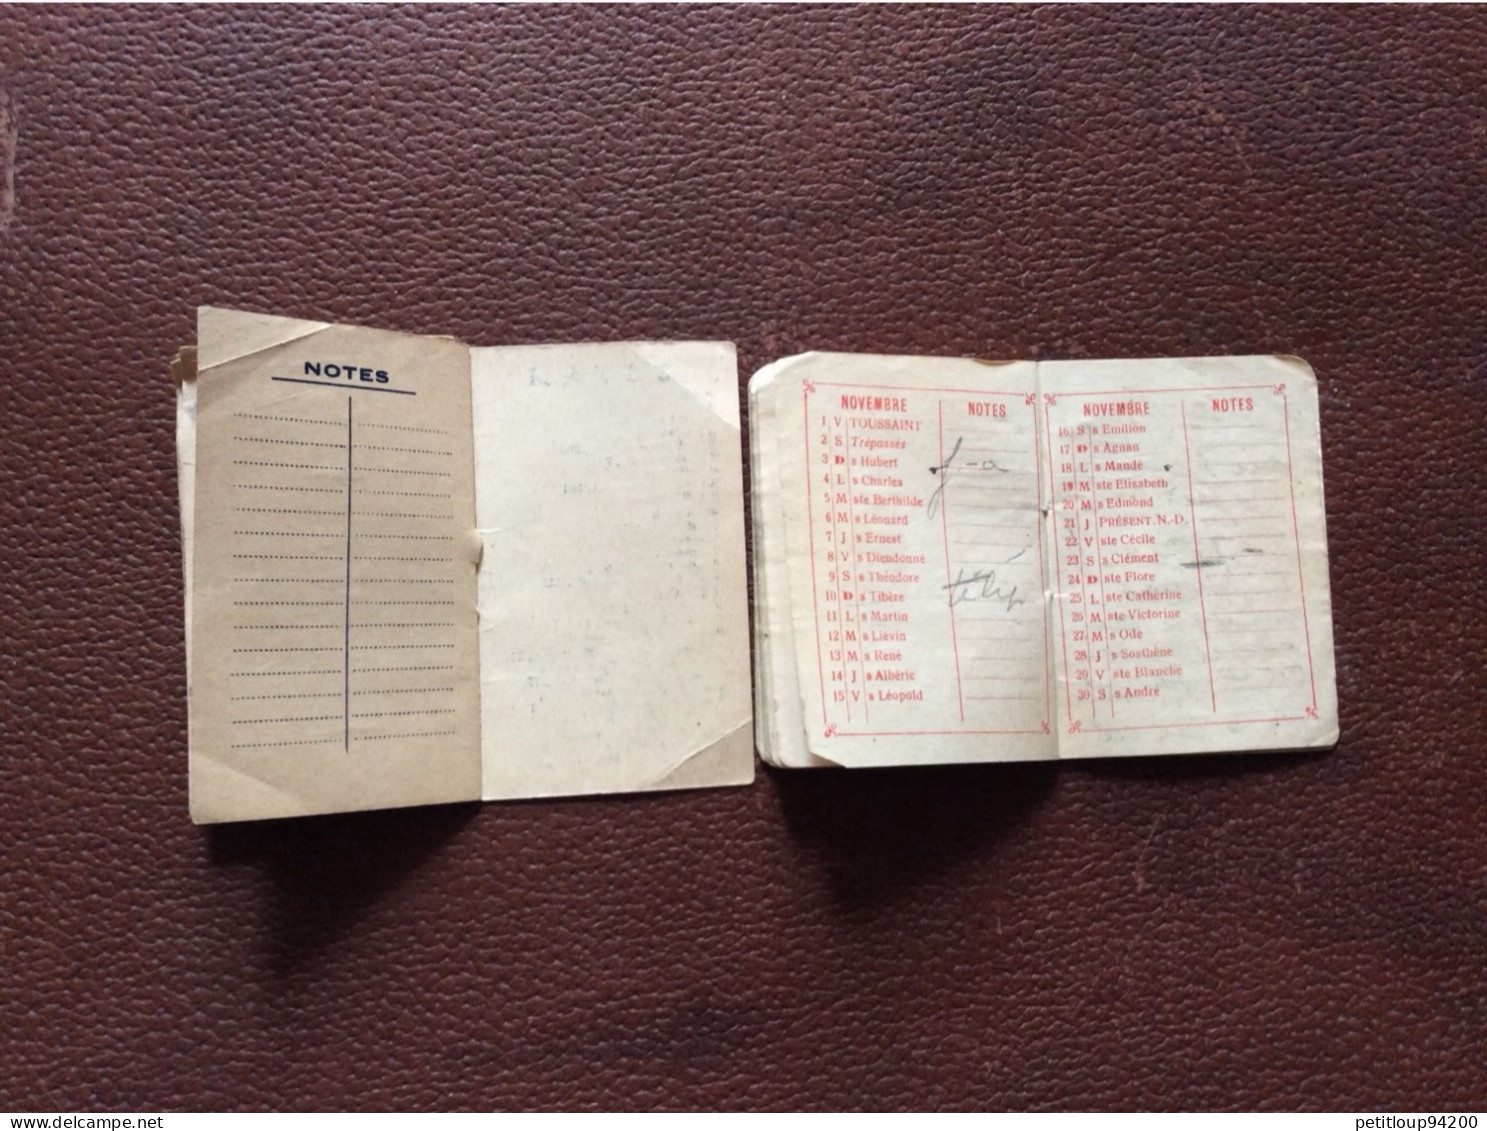 NOTES
NOVEMBRE NOTES
1 V TOUSSAINT
2 S Trépassés
3 D s Hubert
4 L s Charles
5 M ste Berthilde
6 M s Léonard
7 J s Ernest
8 V s Dieudonné
9 S s Théodore
10 D s Tibère
11 L s Martin
12 M s Liévin
13 M s René
14 J s Albéric
15 V s Léopold
NOVEMBRE NOTES
16 S s Emilion
17 D s Agnan
18 L s Mandé
19 M ste Elisabeth
20 M s Edmond
21 J PRÉSENT. N.-D.
22 V ste Cécile
23 S s Clément
24 D ste Flore
25 L ste Cathérine
26 M ste Victorine
27 M s Ode
28 J s Sosthène
29 V ste Blanche
30 S s André
delcampe.net
petitloup94200